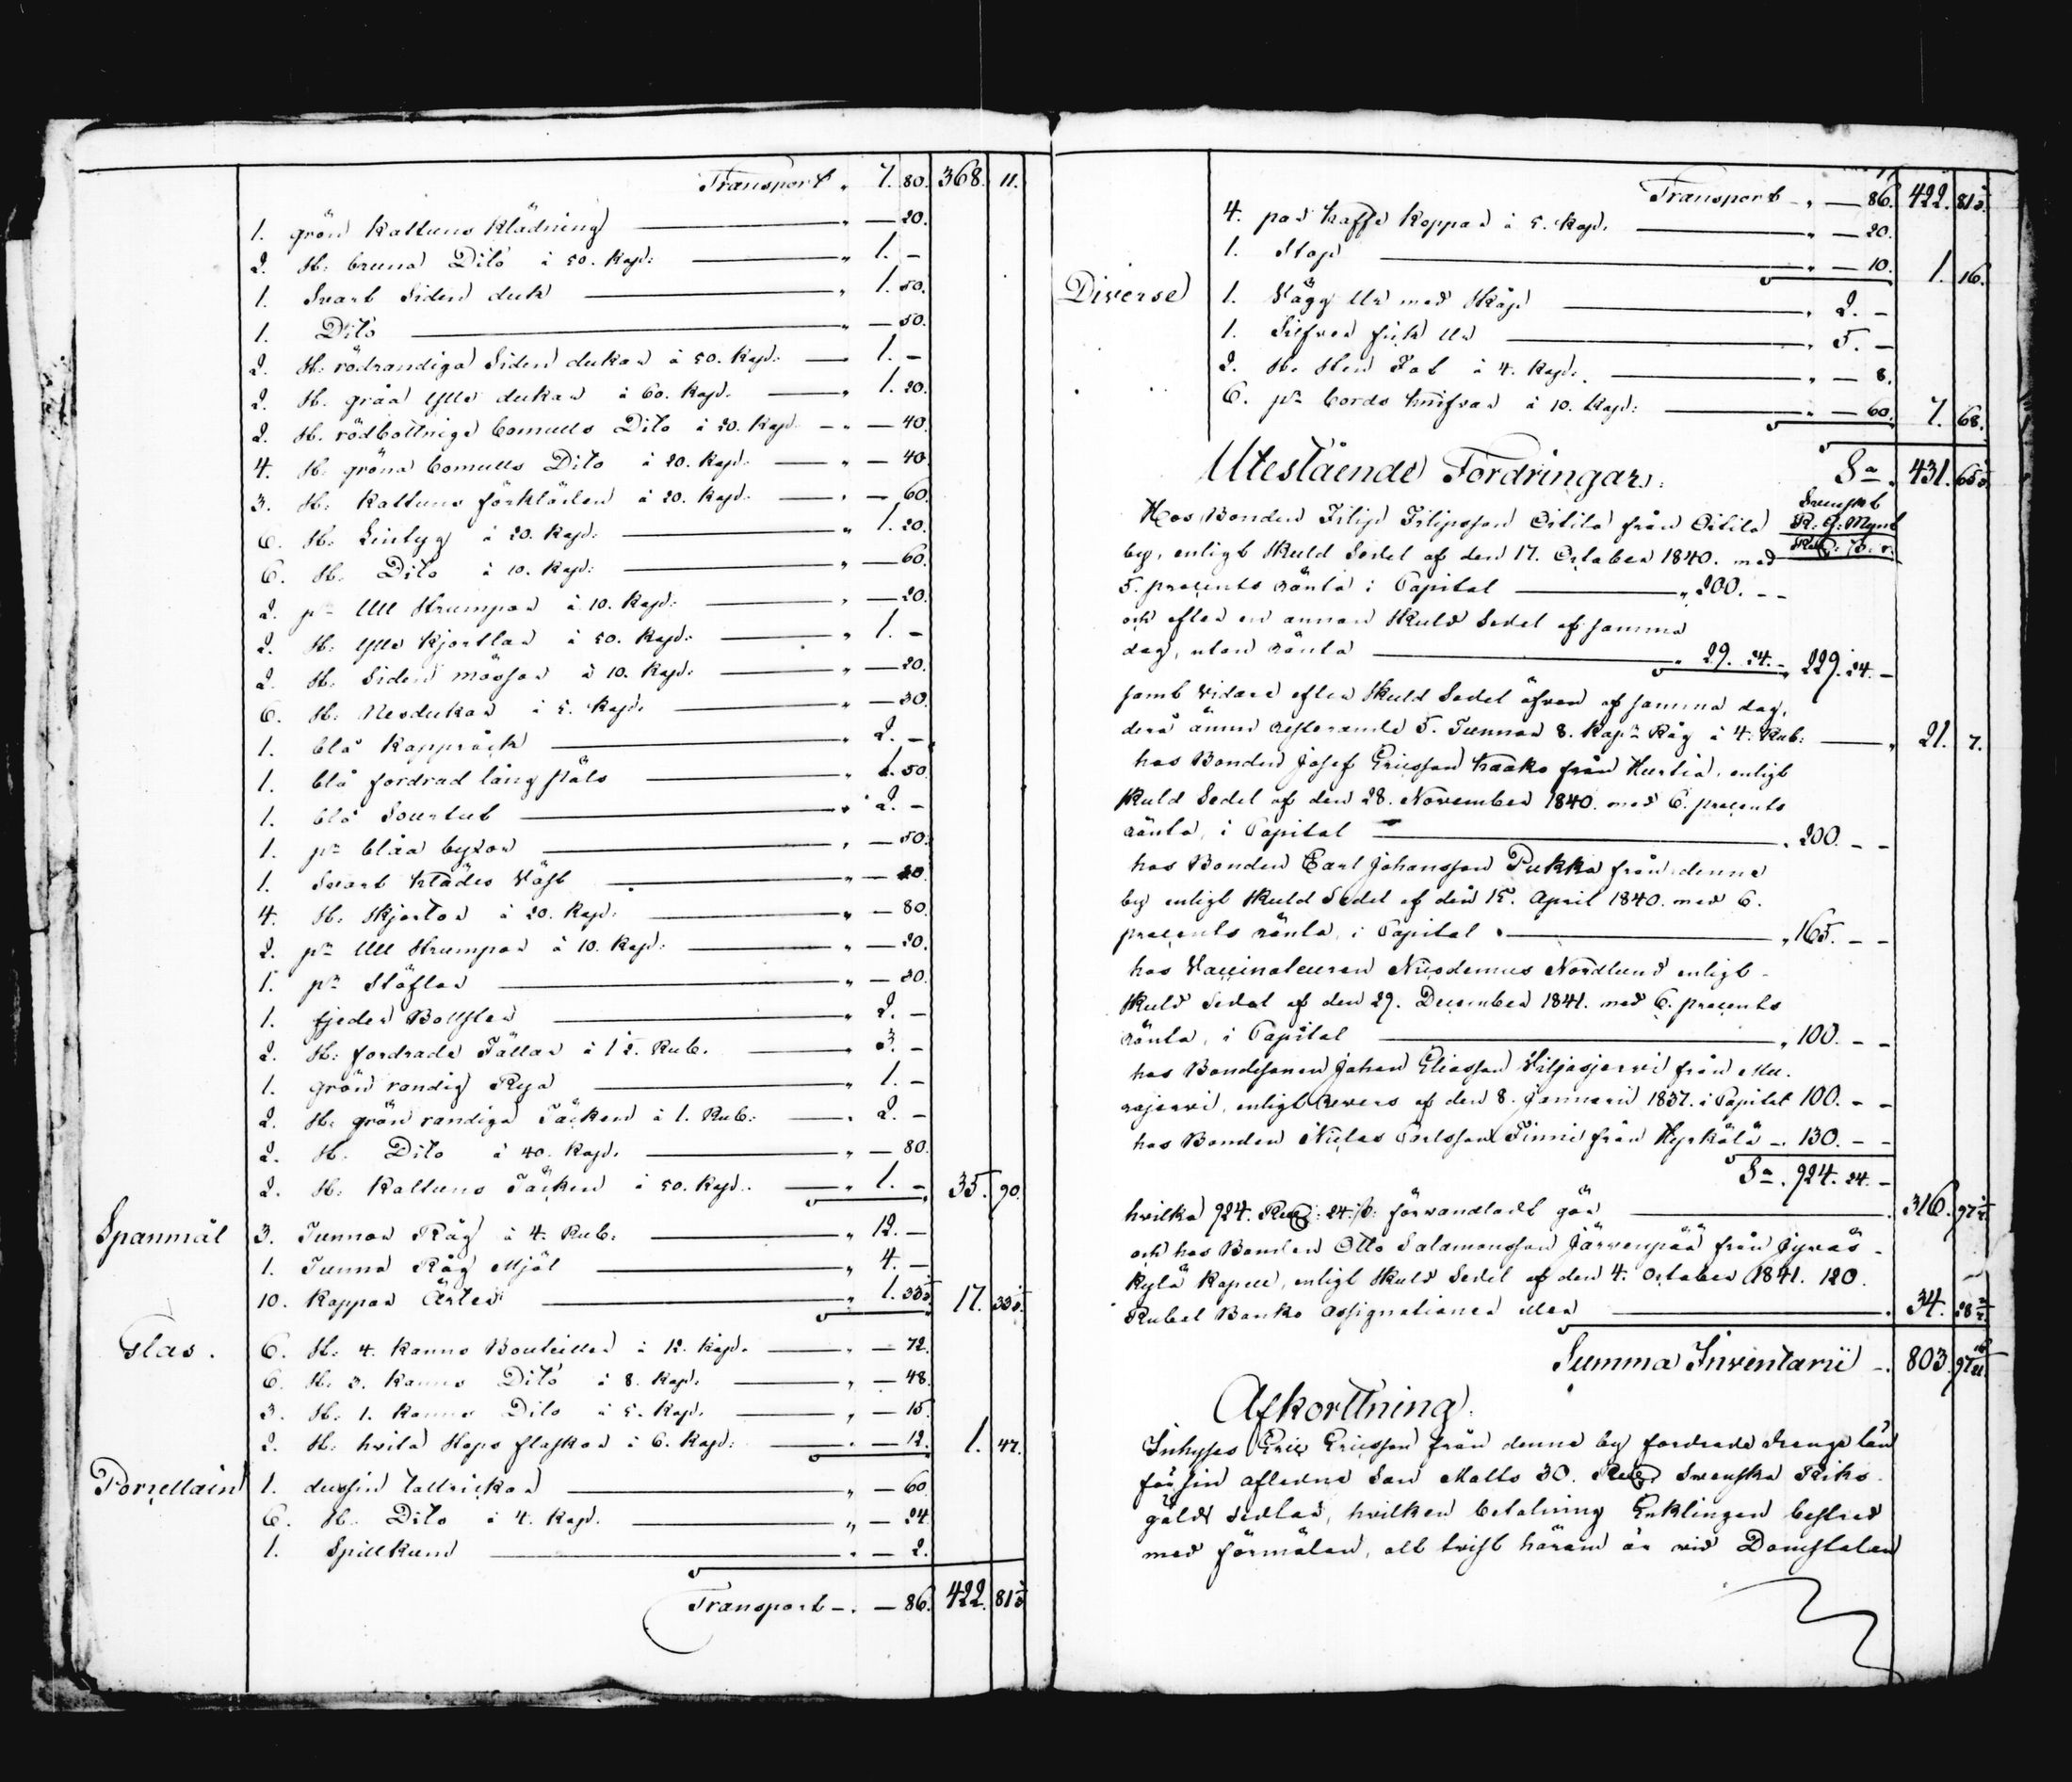 Transport „ 7. 80. 368. 11.
1. grön Kattuns Klädning „ — 20.
2. St: bruna Dito à 50. Kop: „ 1. –
1. Svart Siden duk „ 1. 50.
1. Dito „ — 50.
2. St: rödrandiga Siden dukar à 50. Kop: 1. –
2. St. gråa Ylle dukar à 60. Kop. „ 1. 20.
2. St. rödbottniga bomulls Dito à 20. Kop. „ — 40.
4. St: gröna bomulls Dito à 20. Kop. „ — 40.
3. St: Kattuns förkläden à 20. Kop. „ — 60.
6. St: Lintyg à 20. Kop: „ 1. 20.
6. St. Dito à 10. Kop: „ — 60.
2. pr Ull Strumpor à 10. Kop: „ — 20.
2. St: Ylle Kjortlar à 50. Kop: „ 1. –
2. St. Siden mössor à 10. Kop: „ — 20.
6. St: Nesdukar à 5. Kop. „ — 30.
1. blå Kapprock „ 2. –
1. blå fordrad lång päls „ 1. 50.
1. blå Sourtut „ 2. –
1. pr blåa byxor „ — 50.
1. Svart Klädes Väst „ — 20.
4. St. Skjortor à 20. Kop. „ — 80.
2. pr Ull Strumpor à 10. Kop: „ — 20.
1. pr Stöflar „ — 20.
1. fjeder Bolster „ 2. –
2. St: fordrade Fällar à 1½. Rub. „ 3. –
1. grön randig Rya „ 1. –
2. St: grön randiga Täcken à 1. Rub: „ 2. –
2. St. Dito à 40. Kop. „ — 80.
2. St: Kattuns Täcken à 50. Kop. „ 1. – 35. 90.
Spanmål 3. Tunnor Råg à 4. Rub. „ 12. –
1. Tunna Råg Mjöl „ 4. –
10. Kappar Ärter „ 1. 33⅓ 17. 33⅓.
Glas. 6. St: 4. Kanns Bouteiller à 12. Kop. „ — 72.
6. St: 3. Kanns Dito à 8. Kop. „ — 48.
3. St: 1. Kanns Dito à 5. Kop. „ — 15.
2. St: hvita Stops flaskor à 6. Kop: „ — 12. 1. 47.
Porcellain 1. dussin tallrickar „ — 60.
6. St. Dito à 4. Kop. „ — 24.
1. Spillkum „ — 2.
Transport „ — 86. 422. 81⅓
Transport „ — 86. 422. 81⅓.
4. par Kaffe Koppar à 5. Kop. „ — 20.
1. Stop „ — 10. 1. 16.
Diverse 1. Vägg Ur med Skåp „ 2. –
1. Silfver fick Ur „ 5. –
2. St. Sten Fat à 4. Kop. „ — 8.
6. pr bords Knifvar à 10. Kop: „ — 60. 7. 68.
Utestående Fordringar: Sa 431. 65⅓
Svenskt
R: G: Mynt
Hos Bonden Filip Filipsson Oitila från Oitila
by, enligt Skuld Sedel af den 17. October 1840. med
5. procents ränta i Capital „ 200. – –
och efter en annan Skuld Sedel af samma
dag, utan ränta „ 29. 24. – 229. 24. –
samt vidare efter Skuld Sedel äfven af samma dag,
derå ännu resterande 5. Tunnor 8. Kapr Råg à 4. Rub: „ 21. 7.
hos Bonden Josef Ericsson Kaako från Hurtia, enligt
Skuld Sedel af den 28. November 1840. med 6. procents
ränta, i Capital „ 200. – –
hos Bonden Carl Johansson Pukka från denne
by enligt Skuld Sedel af den 15. April 1840. med 6.
procents ränta, i Capital „ 165. – –
hos Vaccinateuren Nicodemus Nordlund enligt
Skuld Sedel af den 29. December 1841. med 6. procents
ränta, i Capital „ 100. – –
hos Bondesonen Johan Eliasson Viljasjervi från Mu-
rajervi, enligt Revers af den 8. Januarii 1837. i Capital 100. – –
hos Bonden Niclas Carlsson Finni från Hyrkölä – 130. – –
Sa 924. 24. –
hvilka 924. 24. förvandladt gör 316. 97
och hos Bonden Otto Salamonsson Järvenpää från Jyväs-
kylä Kapell, enligt Skuld Sedel af den 4. October 1841. 120.
Rubel Banko Assignationer eller 34. 28
Summa Inventarii – 803. 97
Afkorttning.
Inhyses Eric Ericsson från denne by fordrade drenge lön
för sin aflidne Son Matts 30. Swenska Riks-
gälds Sedlar, hvilken betalning Enklingen bestred
med förmälan, att tvist härom är vid Domstolen